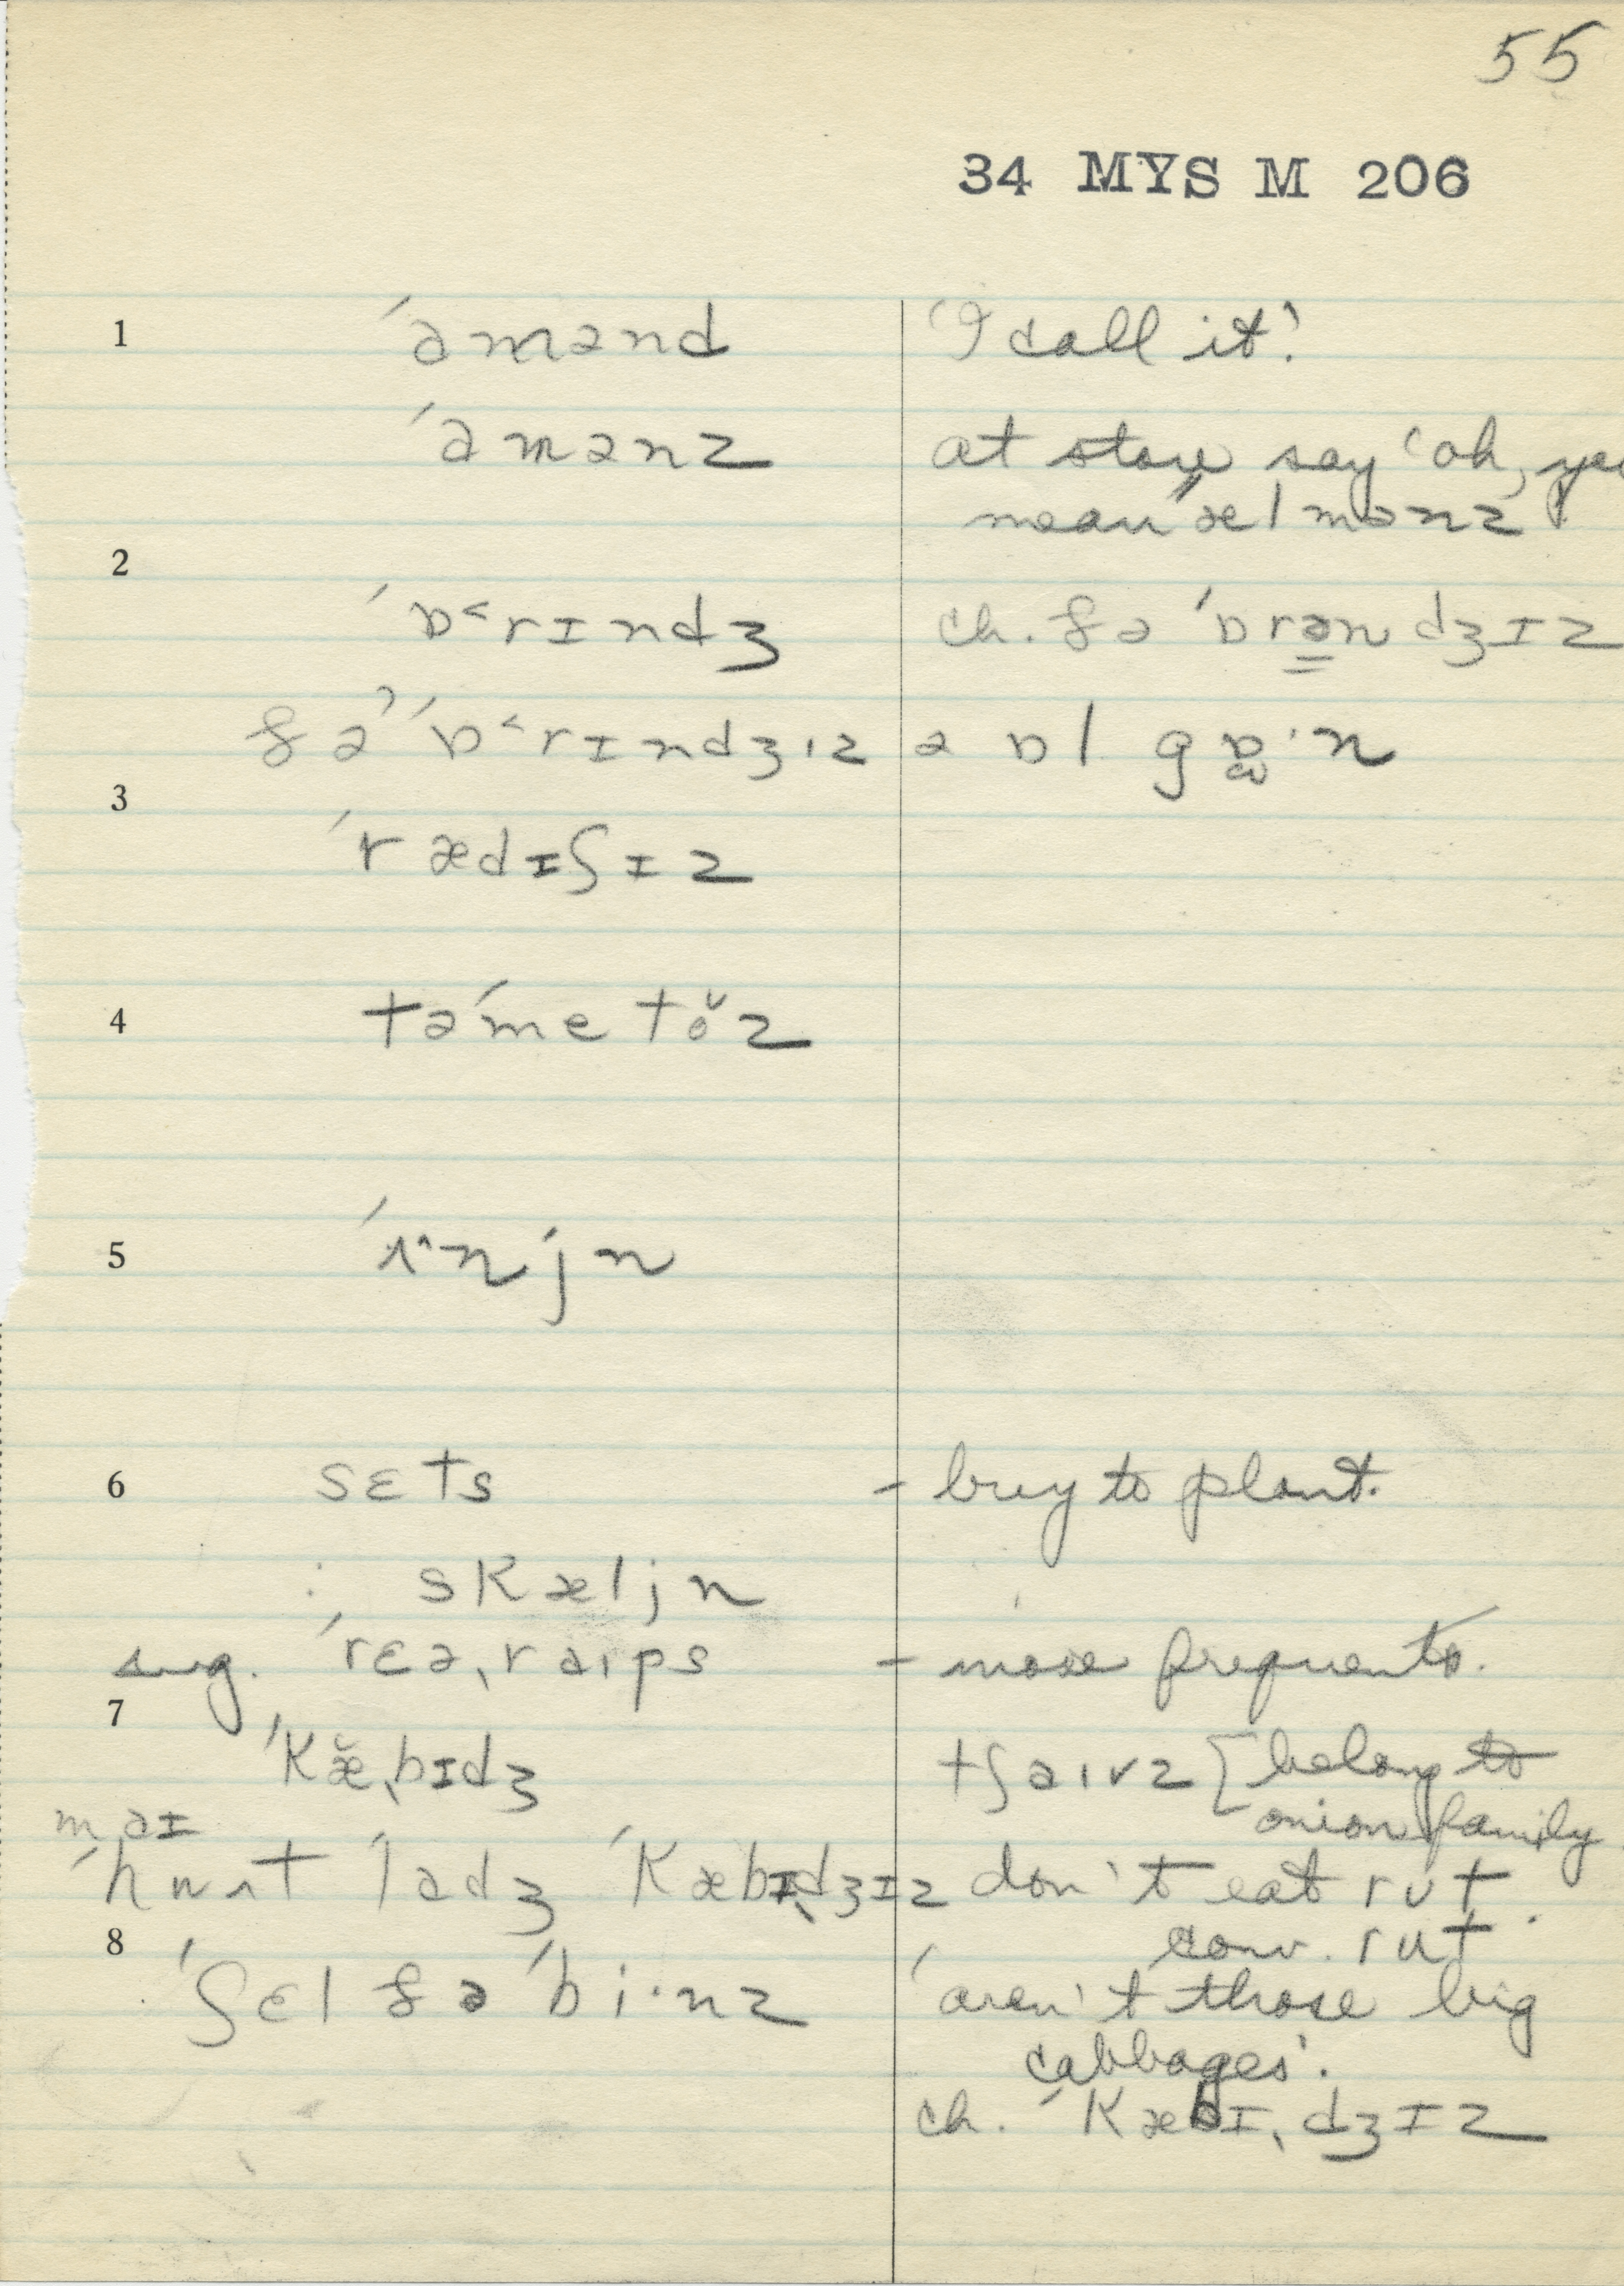 55
34 MYS M 206
1 ˈamənd 'I call it'.
ˈamənz at store say 'oh, you
mean ˈælmənz'?
2
ˈɒ˂rɪndʒ ch. ðə ˈɒrəndʒɪz
ðə ˈɒ˂rɪndʒɪz ə ɒl gɒ·n
3
ˈrædɪʃɪz
4 təˈmetŏz
5 ˈʌ^njn
6 sɛts - buy to plant.
: skæljn
sug. ˈrɛəˌraɪps - more frequent.
7
ˈkæ̆ˌbɪdʒ tʃaɪvz [belong to
onion family
maɪ
ˈhwʌt ˈladʒ ˈkæbɪdʒɪz don't eat rʊt.
8 conv. rut
ˈʃɛl ðə ˈbi·nz 'aren't those big
cabbages'.
ch. ˈkæbɪˌdʒɪz